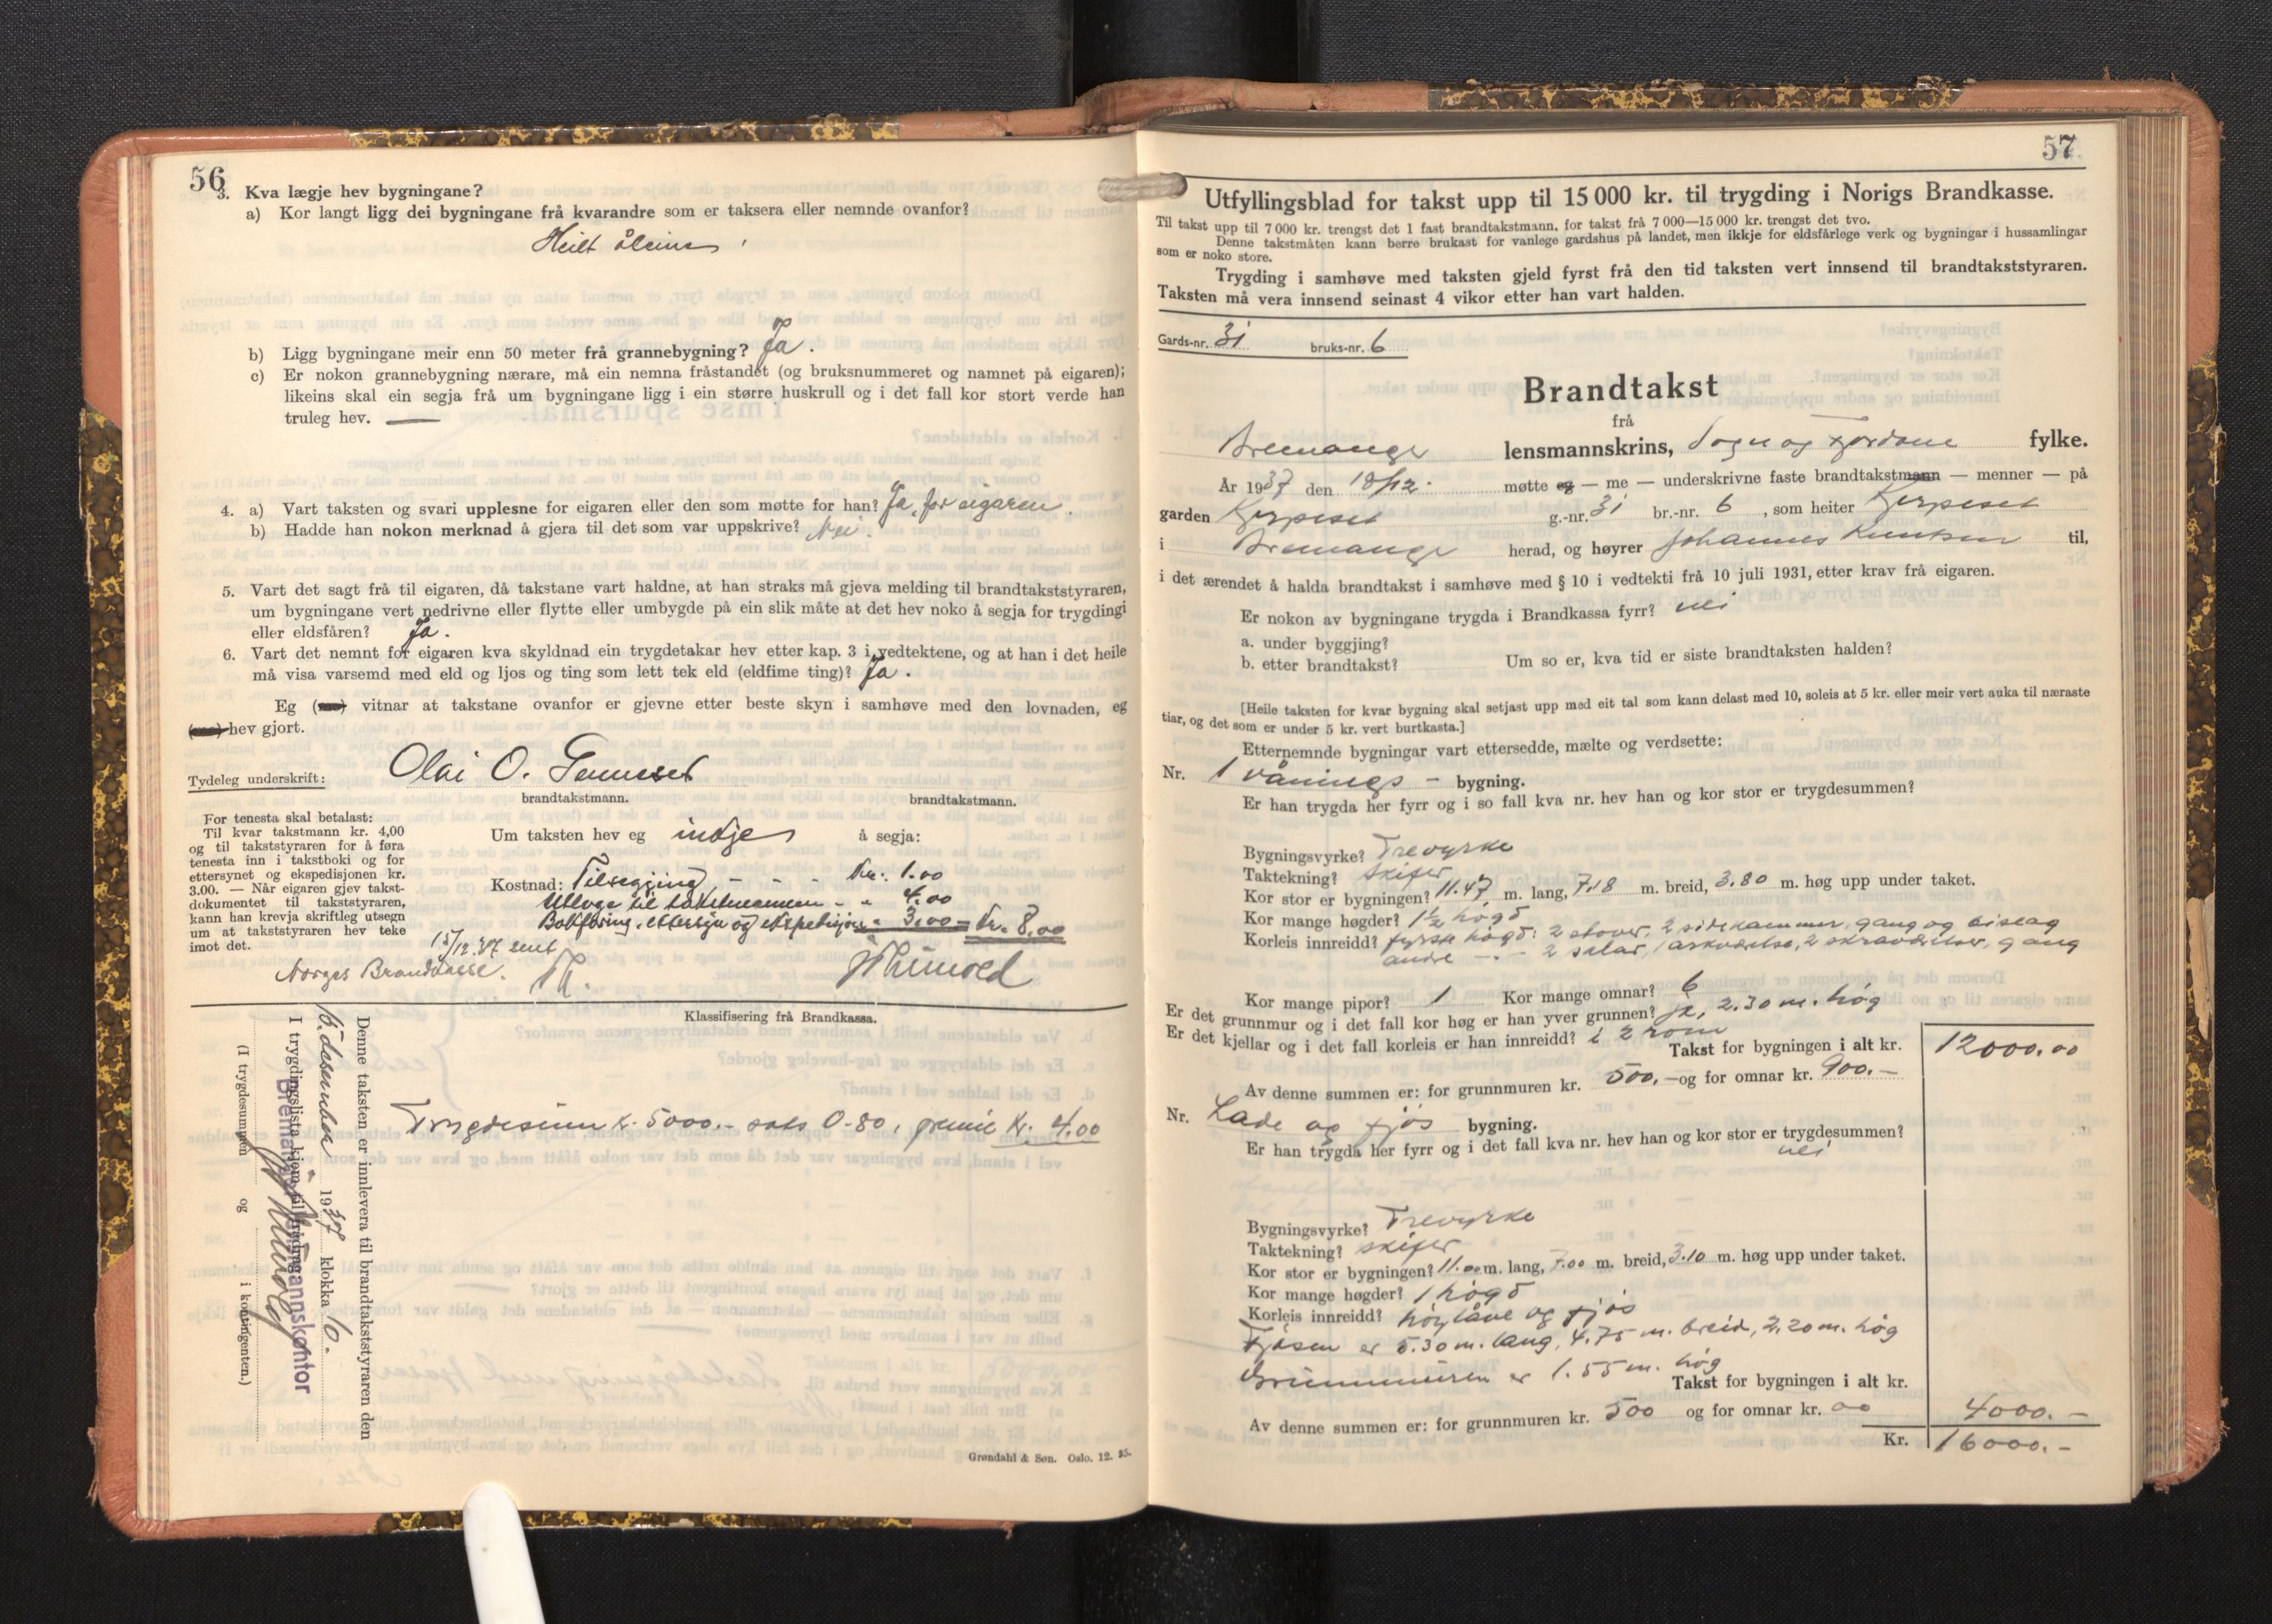 56
3. Kva lægje hev bygningane?
a) Kor langt ligg dei bygningane frå kvarandre som er taksera eller nemnde ovanfor?
Heilt åleine
b) Ligg bygningane meir enn 50 meter frå grannebygning? Ja.
c) Er nokon grannebygning nærare, må ein nemna fråstandet (og bruksnummeret og namnet på eigaren);
likeins skal ein segja frå um bygningane ligg i ein større huskrull og i det fall kor stort verde han
truleg hev. —
4. a) Vart taksten og svari upplesne for eigaren eller den som møtte for han? Ja, for eigaren.
b) Hadde han nokon merknad å gjera til det som var uppskrive? Nei.
5. Vart det sagt frå til eigaren, då takstane vart haldne, at han straks må gjeva melding til brandtakststyraren,
um bygningane vert nedrivne eller flytte eller umbygde på ein slik måte at det hev noko å segja for trygdingi
eller eldsfåren? Ja.
6. Vart det nemnt for eigaren kva skyldnad ein trygdetakar hev etter kap. 3 i vedtektene, og at han i det heile
må visa varsemd med eld og ljos og ting som lett tek eld (eldfime ting)? Ja.
Eg (me) vitnar at takstane ovanfor er gjevne etter beste skyn i samhøve med den lovnaden, eg
(me) hev gjort.
Tydeleg underskrift: Olai O.
brandtakstmann. brandtakstmann.
For tenesta skal betalast:
Til kvar takstmann kr. 4,00
og til takststyraren for å føra
tenesta inn i takstboki og for
ettersynet og ekspedisjonen kr.
3.00. — Når eigaren gjev takst-
dokumentet til takststyraren,
kann han krevja skriftleg utsegn
um at takststyraren hev teke
imot det.
Um taksten hev eg intje å segja:
Kostnad: Tilsegjing - - - Kr. 1.00
Utlagt til takstmannen - " 4.00
Bokføring, ettersyn og ekspedisjon " 3.00 = Kr. 8.00
15/12.37 sent
Norges Brandkasse.
Klassifisering frå Brandkassa.
Trygdesum kr. 5000.- sats 0-80, premie kr. 4.00
Denne taksten er innlevera til brandtakststyraren den
10. desember 1937 klokka 10.
I trygdingslista kjem til
Bremanger lensmannskontor
(I trygdesummen og i kontingenten.)
Grøndahl & Søn. Oslo. 12. 35.
57
Utfyllingsblad for takst upp til 15 000 kr. til trygding i Norigs Brandkasse.
Til takst upp til 7 000 kr. trengst det 1 fast brandtakstmann, for takst frå 7 000—15 000 kr. trengst det tvo.
Denne takstmåten kann berre brukast for vanlege gardshus på landet, men ikkje for eldsfårlege verk og bygningar i hussamlingar
som er noko store.
Trygding i samhøve med taksten gjeld fyrst frå den tid taksten vert innsend til brandtakststyraren.
Taksten må vera innsend seinast 4 vikor etter han vart halden.
Gards-nr. 31 bruks-nr. 6
Brandtakst
frå
Bremanger lensmannskrins, Sogn og Fjordane fylke.
År 1937 den 10/12. møtte eg — me — underskrivne faste brandtakstmann — menner — på
garden g.-nr. 31 br.-nr. 6, som heiter
i Bremanger herad, og høyrer Johannes Knutsen til,
i det ærendet å halda brandtakst i samhøve med § 10 i vedtekti frå 10 juli 1931, etter krav frå eigaren.
Er nokon av bygningane trygda i Brandkassa fyrr? nei
a. under byggjing?
b. etter brandtakst? Um so er, kva tid er siste brandtaksten halden?
[Heile taksten for kvar bygning skal setjast upp med eit tal som kann delast med 10, soleis at 5 kr. eller meir vert auka til næraste
tiar, og det som er under 5 kr. vert burtkasta.]
Etternemnde bygningar vart ettersedde, mælte og verdsette:
Nr. 1 vånings - bygning.
Er han trygda her fyrr og i so fall kva nr. hev han og kor stor er trygdesummen?
Bygningsvyrke? Trevyrke
Taktekning? skifer
Kor stor er bygningen? 11.47 m. lang, 7.18 m. breid, 3.80 m. høg upp under taket.
Kor mange høgder? 1½ høgd
Korleis innreidd? fyrste høgd: 2 stover, 2 sidekammer, gang og bislag
andre -"- 2 salar, 1 arkværelse, 2 skraværelser, gang
Kor mange pipor? 1 Kor mange omnar? 6
Er det grunnmur og i det fall kor høg er han yver grunnen? ja, 2.30 m. høg
Er det kjellar og i det fall korleis er han innreidd? i 2 rom
Takst for bygningen i alt kr. 12000.00
Av denne summen er: for grunnmuren kr. 500.- og for omnar kr. 900.-
Nr. Lade og fjøs bygning.
Er han trygda her fyrr og i det fall kva nr. hev han og kor stor er trygdesummen?
nei
Bygningsvyrke? Trevyrke
Taktekning? skifer
Kor stor er bygningen? 11.00 m. lang, 7.00 m. breid, 3.10 m. høg upp under taket.
Kor mange høgder? 1 høgd
Korleis innreidd? høylåve og fjøs
Fjøsen er 5.30 m. lang, 4.75 m. breid, 2.20 m. høg
Grunnmuren er 1.55 m. høg
Takst for bygningen i alt kr.
Av denne summen er: for grunnmuren kr. 500 og for omnar kr. 00 4000.-
Kr. 16000.-